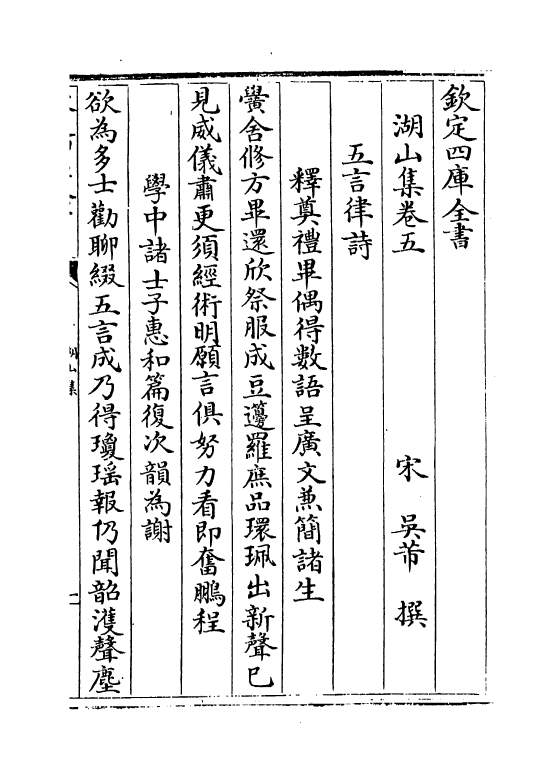 欽定四庫全書
湖山集卷五
宋 吳芾 撰
五言律詩
釋奠禮畢偶得數語呈廣文兼簡諸生
黌舍修方畢還欣祭服成豆籩羅庶品環珮出新聲已
見威儀肅更須經術明願言俱努力看即奮鵬程
學中諸士子惠和篇復次韻為謝
欲為多士勸聊綴五言成乃得瓊瑤報仍聞韶濩聲塵
湖山集